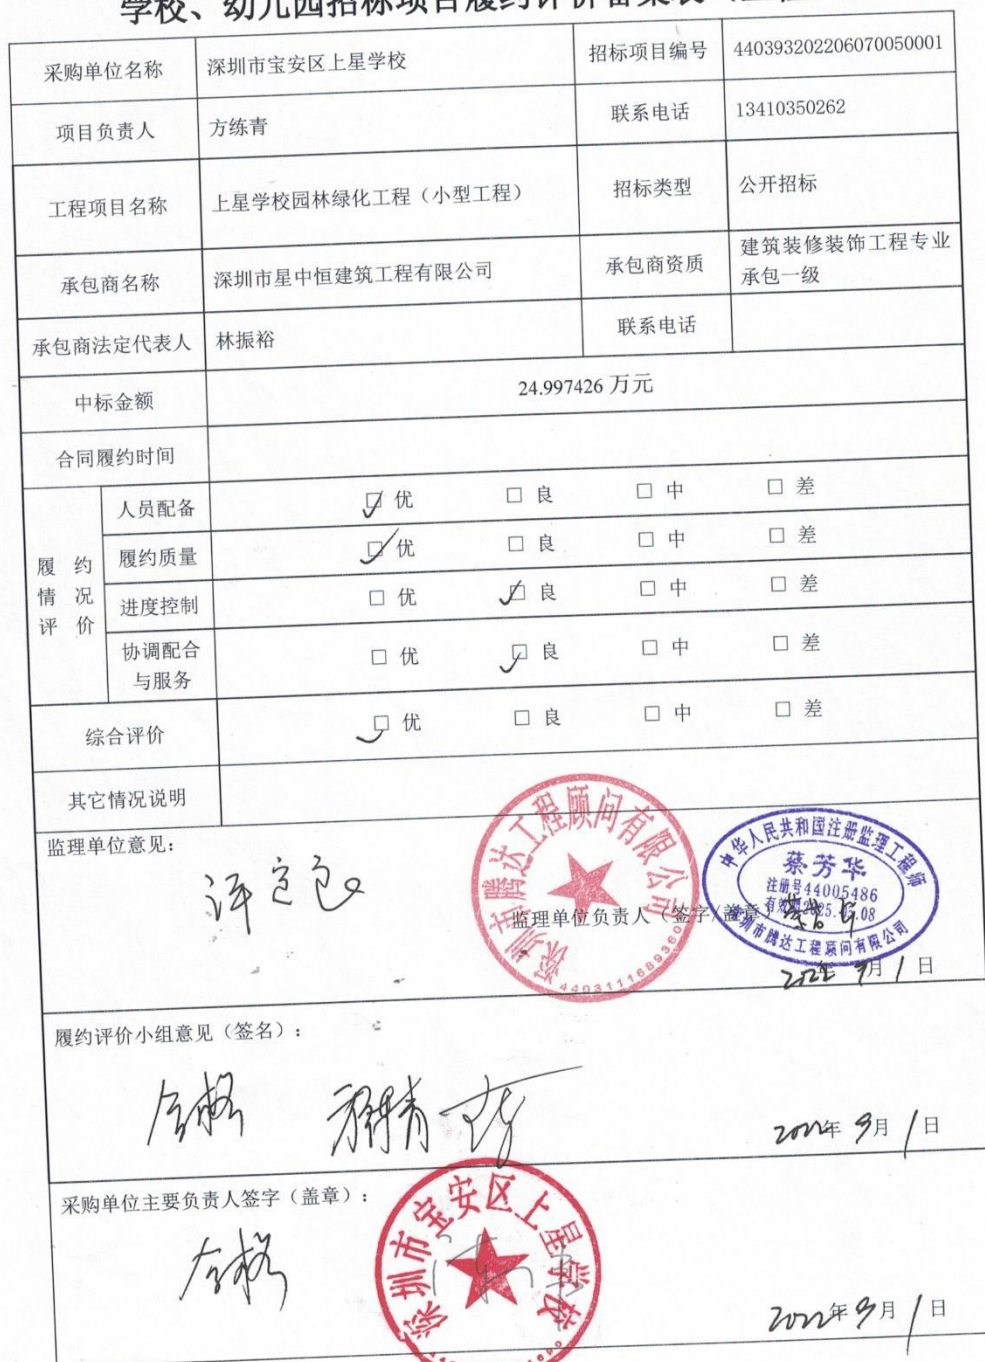 学校、幼儿园招标项目履约评价备案表（工程
采购单位名称 深圳市宝安区上星学校 招标项目编号 440393202206070050001
项目负责人 方练青 联系电话 13410350262
工程项目名称 上星学校园林绿化工程（小型工程） 招标类型 公开招标
承包商名称 深圳市星中恒建筑工程有限公司 承包商资质 建筑装修装饰工程专业
承包一级
承包商法定代表人 林振裕 联系电话
中标金额 24.997426 万元
合同履约时间
履约
情况
评价
人员配备 ☑ 优 □ 良 □ 中 □ 差
履约质量 ☑ 优 □ 良 □ 中 □ 差
进度控制 □ 优 ☑ 良 □ 中 □ 差
协调配合
与服务 □ 优 ☑ 良 □ 中 □ 差
综合评价 ☑ 优 □ 良 □ 中 □ 差
其它情况说明
监理单位意见：
深圳市腾达工程顾问有限公司
中华人民共和国注册监理工程师
蔡芳华
注册号44005486
有效期2025.05.08
深圳市腾达工程顾问有限公司
监理单位负责人（签字/盖章）
2022年 9月 1日
履约评价小组意见（签名）：
合格
2022年 9月 1日
采购单位主要负责人签字（盖章）：
合格
深圳市宝安区上星学校
2022年 9月 1日